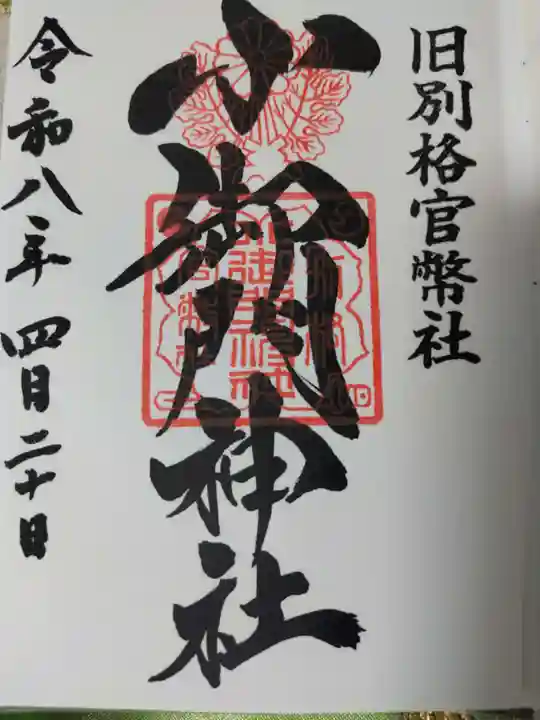 旧別格官幣社
小御門神社
令和八年四月二十日